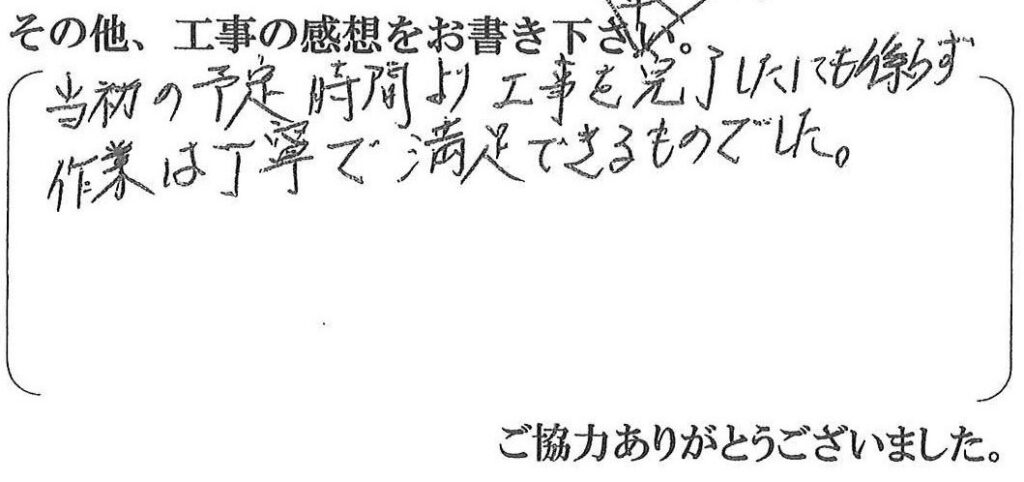 その他、工事の感想をお書き下さい。
当初の予定時間より工事を完了したにも係らず
作業は丁寧で満足できるものでした。
ご協力ありがとうございました。